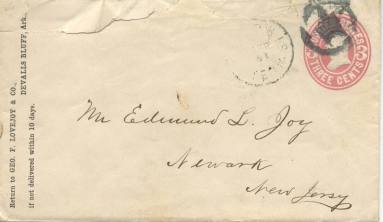 Return to GEO. F. LOVEJOY & CO.,
DEVALLS BLUFF, Ark.,
if not delivered within 10 days.
THREE CENTS
Mr Edmund L. Joy
Newark
New Jersy